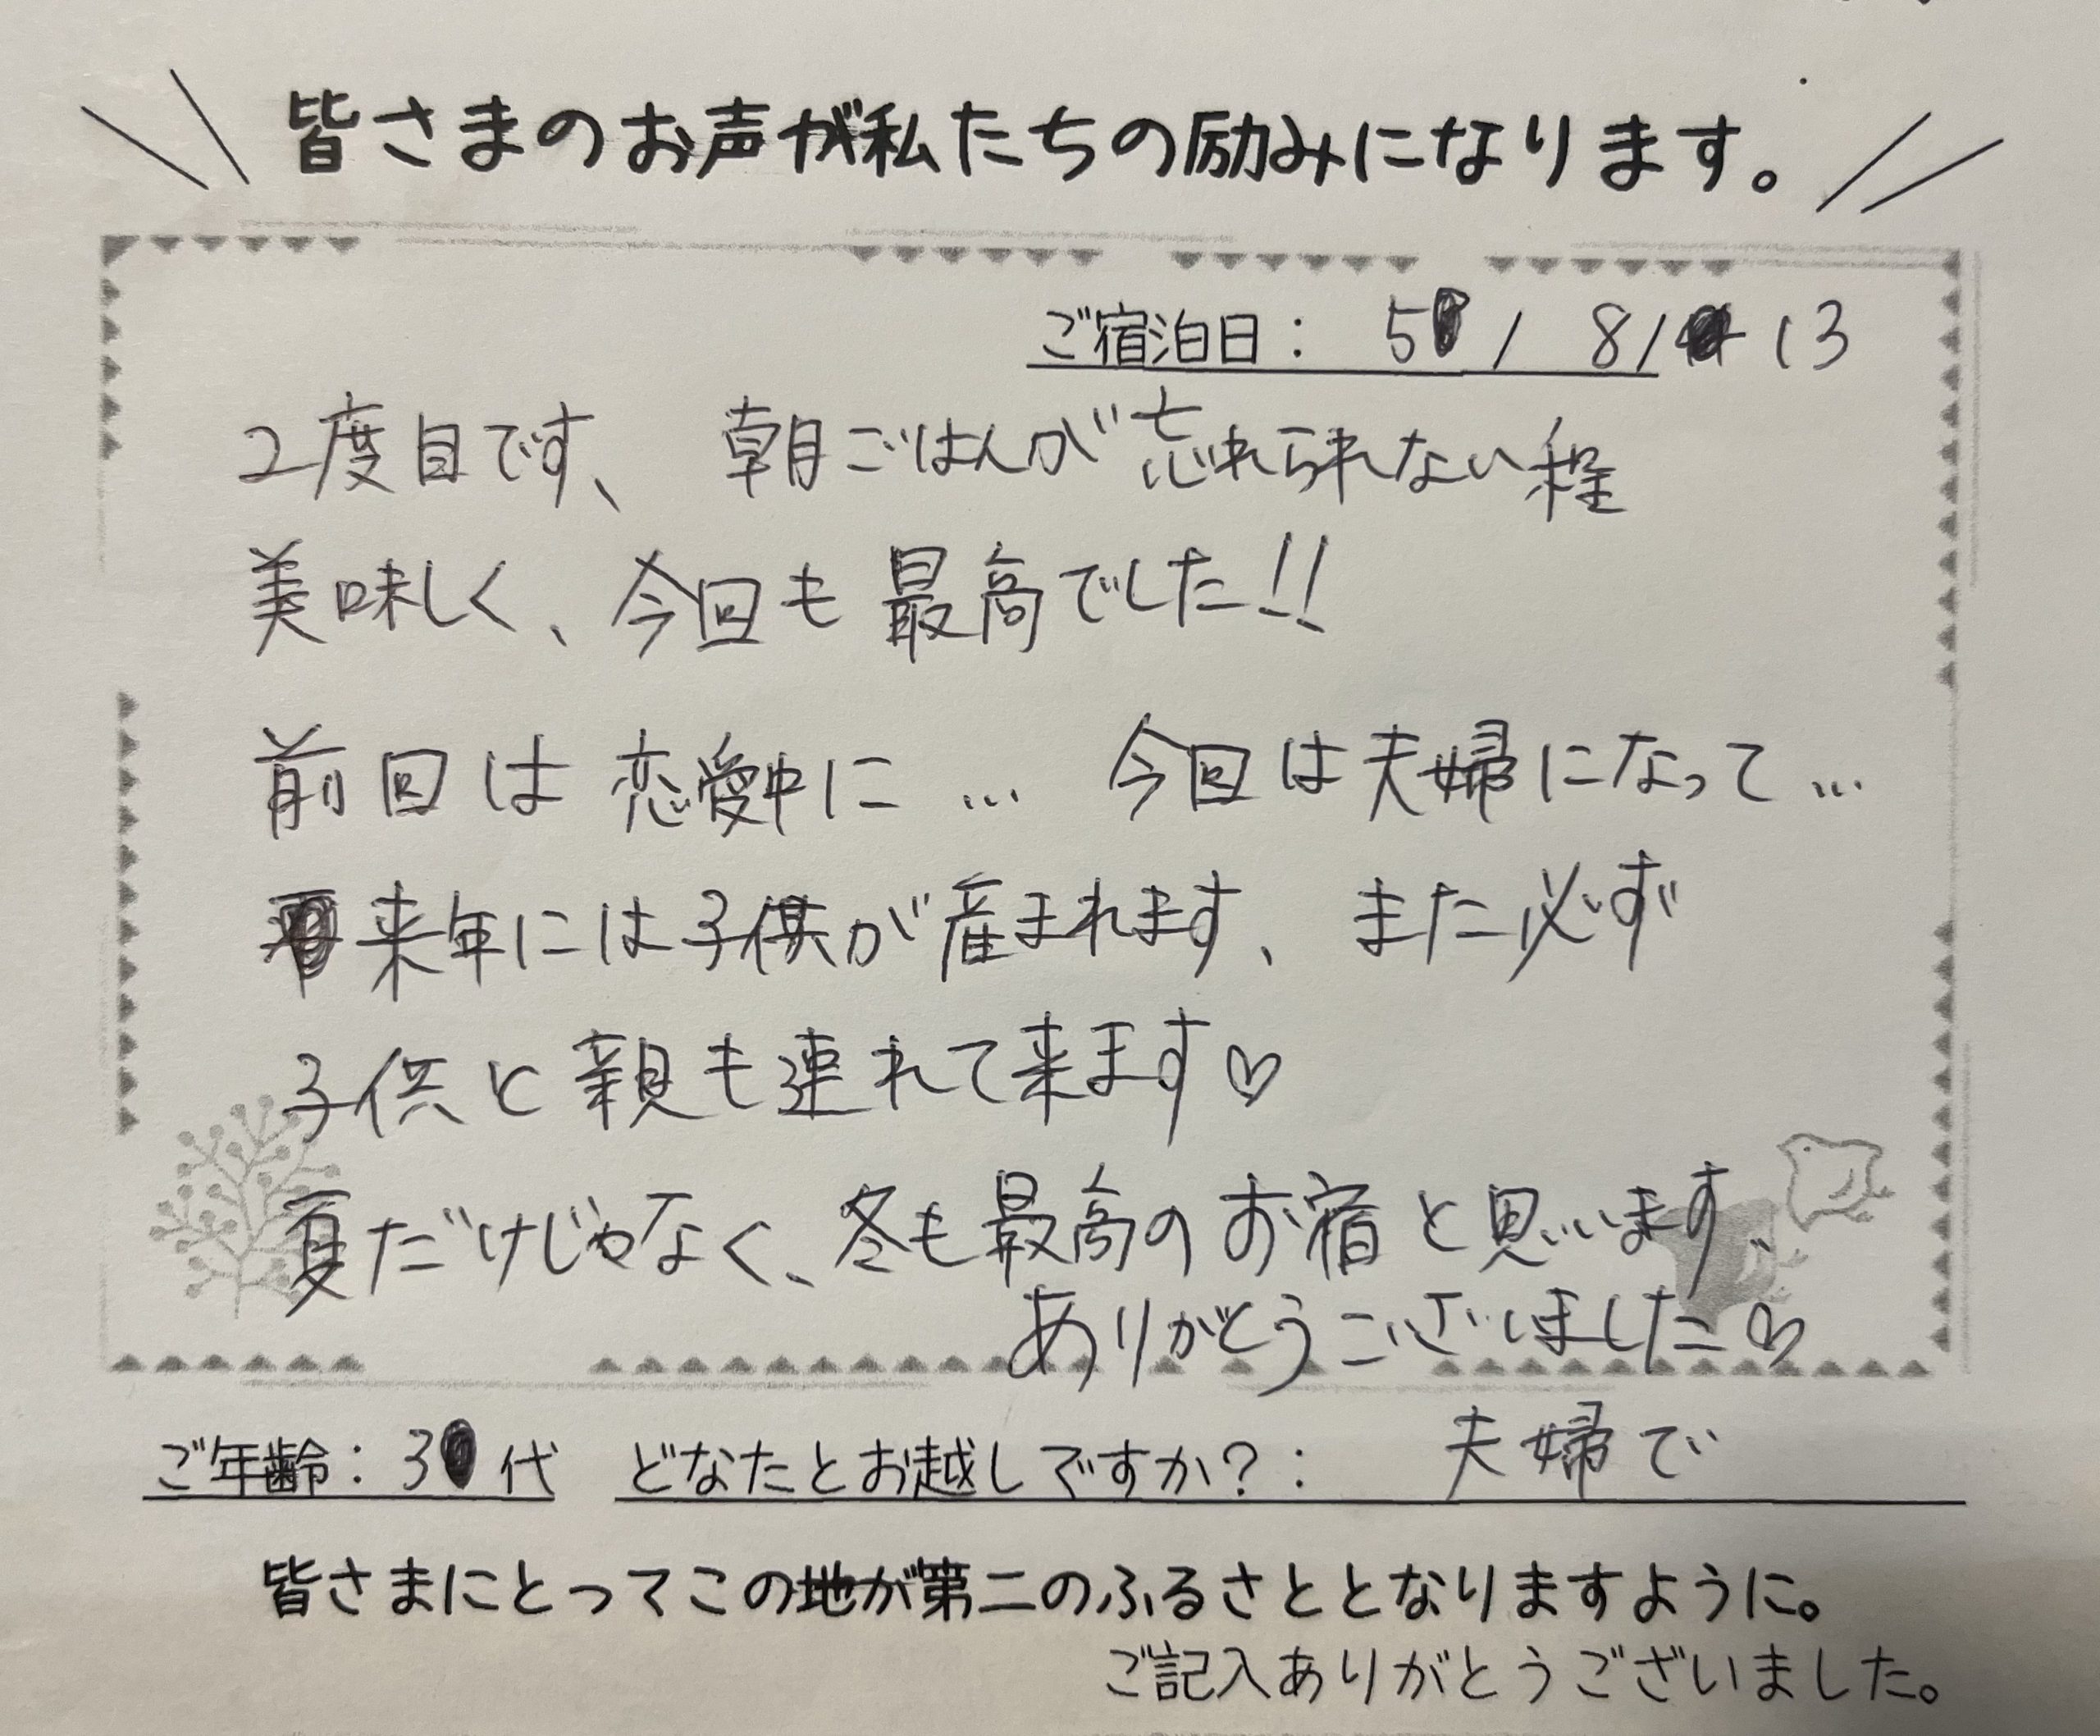 皆さまのお声が私たちの励みになります。
ご宿泊日： 5 / 8/ 13
2度目です、 朝ごはんが忘れられない程
美味しく、今回も最高でした!!
前回は恋愛中に… 今回は夫婦になって…
来年には子供が産まれます、また必ず
子供と親も連れて来ます♡
夏だけじゃなく、冬も最高のお宿と思います、
ありがとうございました♡
ご年齢：3 代 どなたとお越しですか？： 夫婦で
皆さまにとってこの地が第二のふるさととなりますように。
ご記入ありがとうございました。